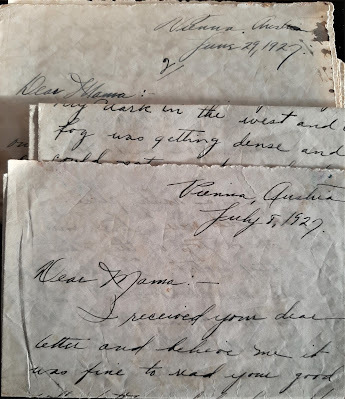 Vienna, Austria
June 29, 1927.
Dear Mama:-
dark in the west and
fog was getting dense and
could
Vienna, Austria
July 8, 1927.
Dear Mama:-
I received your dear
letter and believe me it
was fine to read your good